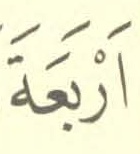 اَرْبَعَةَ